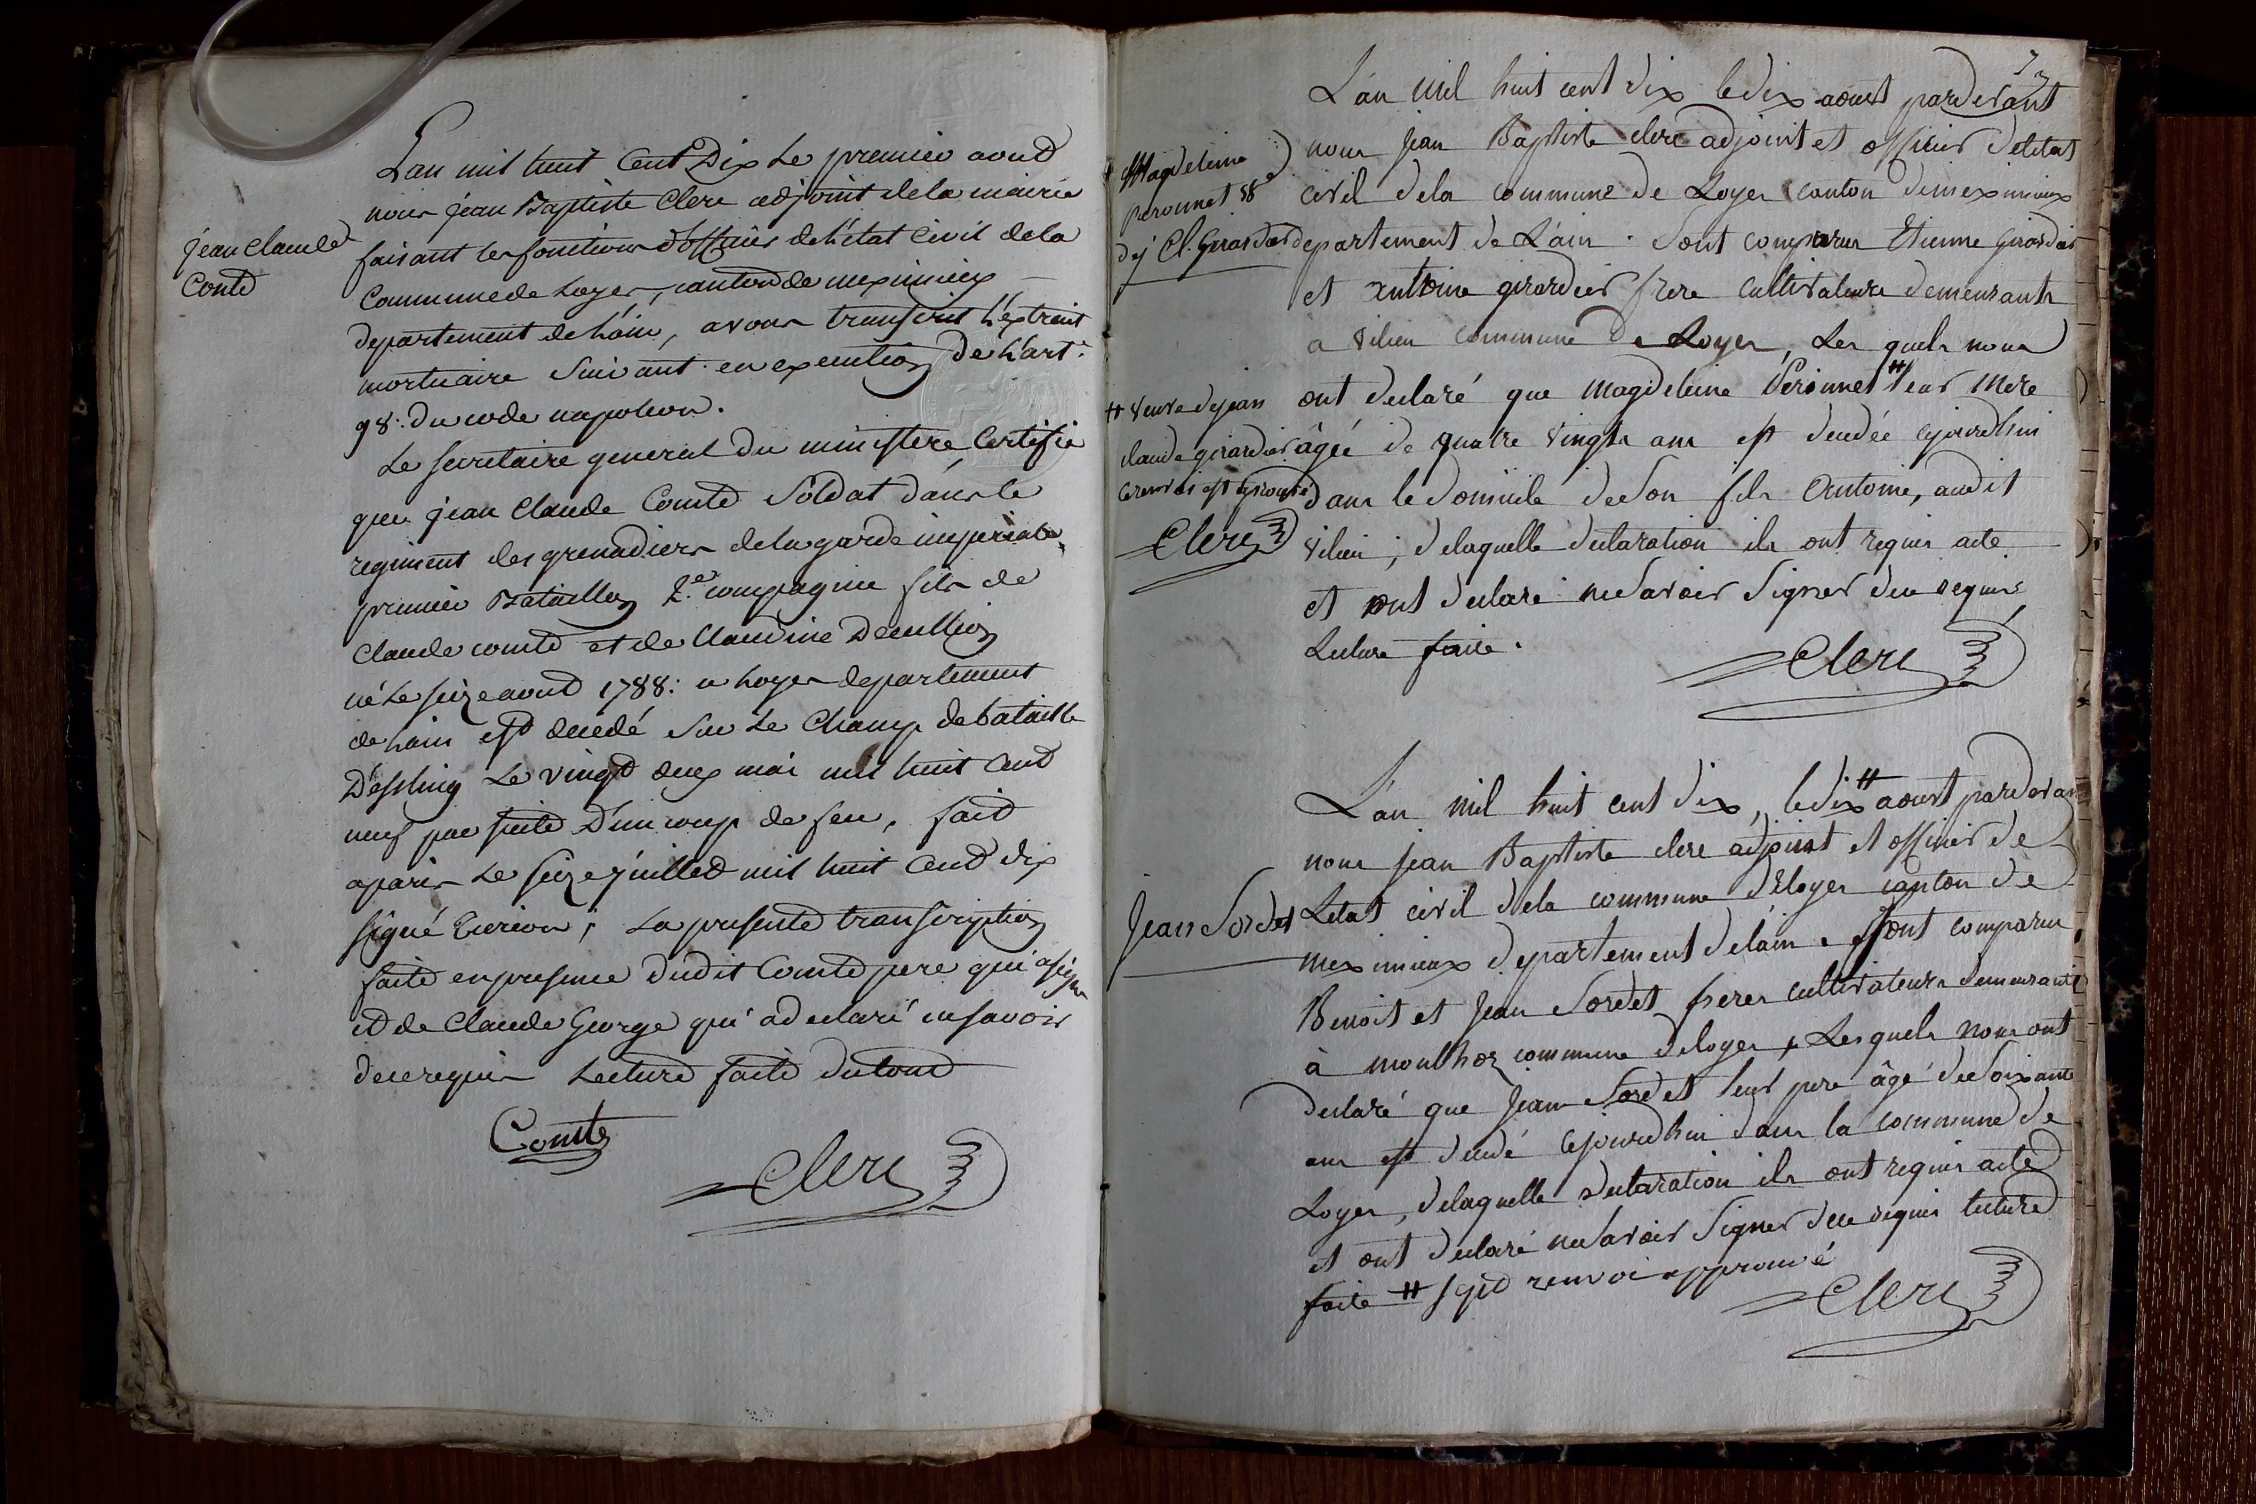 Jean Claude
Comte
L'an mil huit Cent Dix Le premier aoud
nous jean Baptiste Clerc adjoint de la mairie
faisant les fonctions d'officier de l'état Civil de la
Commune de Loyes, canton de meximieux
departement de L'ain, avons transcrit L'extrait
mortuaire Suivant en execution de L'art.
98. du code napoleon.
Le Secretaire general Du ministere Certifie
que jean Claude Comte Soldat dans le
regiment des grenadiers de la garde imperiale,
premier Bataillon 2e compagnie fils de
Claude comte et de Claudine
né Le seize aoud 1788: a Loyes departement
de Lain est decedé Sur Le Champ de bataille
D'essling Le vingt deux mai mil huit Cent
neuf par suite D'un coup de feu, fait
a paris Le seize juillet mil huit Cent dix
signé ; La presente transcription
faite en presence dudit Comte pere qui a signé
et de Claude George qui a declaré ne savoir
de ce requis Lecture faite du tout
Comte
Clerc
73
Magdeleine
Peronnet Ve
de j Cl. Girardier
L'an Mil huit cent dix le dix aoust pardevant
nous Jean Baptiste clerc adjoint et officier de letat
civil de la commune de Loyes canton de meximieux
departement de L'ain. Sont comparus Etienne Girardier
et antoine girardier frere cultivateurs demeurants
a vilieu commune de Loyes, Les quels nous
ont declaré que Magdeleine Peronnet # leur Mere
âgée de quatre vingts ans est decedée cejourdhui
dans le domicile de Son fils Antoine, audit
vilieu; de laquelle declaration ils ont requis acte
et ont declaré ne Savoir Signer de ce requis
Lecture faite.
Clerc
# veuve de jean
claude girardier
ce renvoi est approuvé
Clerc
Jean Sordet
L'an mil huit cent dix, le dix # aoust pardevant
nous Jean Baptiste clerc adjoint et officier de
Letat civil de la commune de Loyes canton de
meximieux departement de lain. Sont comparus
Benoit et Jean Sordet freres cultivateurs demeurants
à monthoz commune de loyes, Lesquels nous ont
declaré que Jean Sordet leur pere âgé de Soixante
ans est decedé cejourdhui dans la commune de
Loyes, de laquelle declaration ils ont requis acte
et ont declaré ne Savoir Signer de ce requis lecture
faite # sept renvoi approuvé
Clerc